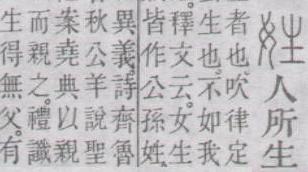 姓人所生
者也。吹律定
生也。不如我
釋文云。女生
皆作公孫姓。
異義。詩齊魯
秋公羊說聖
案堯典以親
而親之。禮讖
生得無父。有